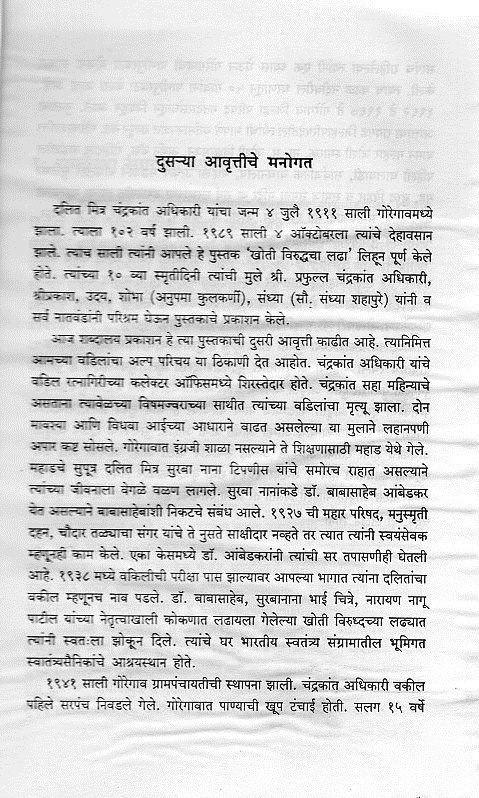 दुसऱ्या आवृत्तीचे मनोगत
दलित मित्र चंद्रकांत अधिकारी यांचा जन्म ४ जुलै १९११ साली गोरेगावमध्ये
झाला. त्याला १०२ वर्ष झाली. १९८९ साली ४ ऑक्टोबरला त्यांचे देहावसान
झाले. त्याच साली त्यांनी आपले हे पुस्तक 'खोती विरुद्धचा लढा' लिहून पूर्ण केले
होते. त्यांच्या १० व्या स्मृतीदिनी त्यांची मुले श्री. प्रफुल्ल चंद्रकांत अधिकारी,
श्रीप्रकाश, उदय, शोभा (अनुपमा कुलकर्णी), संध्या (सौ. संध्या शहापुरे) यांनी व
सर्व नातवंडांनी परिश्रम घेऊन पुस्तकाचे प्रकाशन केले.
आज शब्दालय प्रकाशन हे त्या पुस्तकाची दुसरी आवृत्ती काढीत आहे. त्यानिमित्त
आमच्या वडिलांचा अल्प परिचय या ठिकाणी देत आहोत. चंद्रकांत अधिकारी यांचे
वडिल रत्नागिरीच्या कलेक्टर ऑफिसमध्ये शिरस्तेदार होते. चंद्रकांत सहा महिन्याचे
असताना त्यावेळच्या विषमज्वराच्या साथीत त्यांच्या वडिलांचा मृत्यू झाला. दोन
मावश्या आणि विधवा आईच्या आधाराने वाढत असलेल्या या मुलाने लहानपणी
अपार कष्ट सोसले. गोरेगावात इंग्रजी शाळा नसल्याने ते शिक्षणासाठी महाड येथे गेले.
महाडचे सुपूत्र दलित मित्र सुरबा नाना टिपणीस यांचे समोरच राहात असल्याने
त्यांच्या जीवनाला वेगळे वळण लागले. सुरबा नानांकडे डॉ. बाबासाहेब आंबेडकर
येत असल्याने बाबासाहेबांशी निकटचे संबंध आले. १९२७ ची महार परिषद, मनुस्मृती
दहन, चौदार तळ्याचा संगर यांचे ते नुसते साक्षीदार नव्हते तर त्यात त्यांनी स्वयंसेवक
म्हणूनही काम केले. एका केसमध्ये डॉ. आंबेडकरांनी त्यांची सर तपासणीही घेतली
आहे. १९३८ मध्ये वकिलीची परीक्षा पास झाल्यावर आपल्या भागात त्यांना दलितांचा
वकील म्हणूनच नाव पडले. डॉ. बाबासाहेब, सुरबानाना भाई चित्रे, नारायण नागू
पाटील यांच्या नेतृत्वाखाली कोकणात लढायला गेलेल्या खोती विरुध्दच्या लढ्यात
त्यांनी स्वतःला झोकून दिले. त्यांचे घर भारतीय स्वतंत्र्य संग्रामातील भूमिगत
स्वातंत्र्यसैनिकांचे आश्रयस्थान होते.
१९४१ साली गोरेगाव ग्रामपंचायतीची स्थापना झाली. चंद्रकांत अधिकारी वकील
पहिले सरपंच निवडले गेले. गोरेगावात पाण्याची खूप टंचाई होती. सलग १५ वर्षे